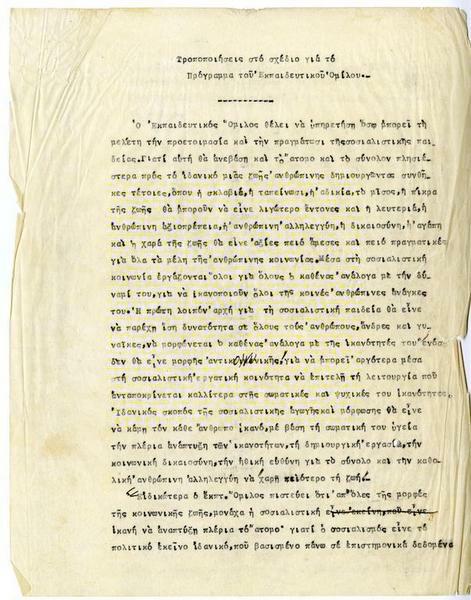 Τροποποιήσεις στό σχέδιο γιά τό
Πρόγραμμα τοῦ Ἐκπαιδευτικοῦ Ὁμίλου.-
----------
Ὁ Ἐκπαιδευτικός Ὅμιλος θέλει νά ὑπηρετήση ὅσο μπορεῖ τή
μελέτη τήν προετοιμασία καί τήν πραγμάτωσι τῆς σοσιαλιστικῆς παι-
δείας. Γιατί αὐτή θά ἀνεβάση καί τό ἄτομο καί τό σύνολον πλησιέ-
στερα πρός τό ἰδανικό μιᾶς ζωῆς ἀνθρώπινης δημιουργῶντας συνθῆ-
κες τέτοιες, ὅπου ἡ σκλαβιά, ἡ ταπείνωσι, ἡ ἀδικία, τό μῖσος, ἡ πίκρα
τῆς ζωῆς θά μποροῦν νά εἶνε λιγώτερο ἔντονες καί ἡ λευτεριά, ἡ
ἀνθρώπινη ἀξιοπρέπεια, ἡ ἀνθρώπινη ἀλληλεγγύη, ἡ δικαιοσύνη, ἡ ἀγάπη
καί ἡ χαρά τῆς ζωῆς θά εἶνε ἀξίες πειό ἄμεσες καί πειό πραγματικές
γιά ὅλα τά μέλη τῆς ἀνθρώπινης κοινωνίας. Μέσα στή σοσιαλιστική
κοινωνία ἐργάζονται ὅλοι γιά ὅλους ὁ καθένας ἀνάλογα μέ τήν δύ-
ναμί του, γιά νά ἱκανοποιοῦν ὅλοι τής κοινές ἀνθρώπινες ἀνάγκες
του. Ἡ πρώτη λοιπόν ἀρχή γιά τή σοσιαλιστική παιδεία θά εἶνε
νά παρέχη ἴση δυνατότητα σέ ὅλους τούς ἀνθρώπους, ἄνδρες καί γυ-
ναῖκες, νά μορφώνεται ὁ καθένας ἀνάλογα μέ τῆς ἱκανότητές του
δέν θά εἶνε μορφῆς γιά νά μπορεῖ ἀργότερα μέσα
στή σοσιαλιστική ἐργατική κοινότητα νά ἐπιτελῆ τή λειτουργία πού
ἀνταποκρίνεται καλλίτερα στῆς σωματικές καί ψυχικές του ἱκανότητες.
Ἰδανικός σκοπός τῆς σοσιαλιστικῆς ἀγωγῆς καί μόρφωσης θά εἶνε
νά κάμη τόν κάθε ἄνθρωπο ἱκανό, μέ βάση τή σωματική του ὑγεία
τήν πλέρια ἀνάπτυξη τῶν ἱκανοτήτων, τή δημιουργική ἐργασία, τήν
κοινωνική δικαιοσύνη, τήν ἠθική εὐθύνη γιά τό σύνολο καί τήν καθο-
λική ἀνθρώπινη ἀλληλεγγύη νά χαρῆ πειότερο τή ζωή.
Εἰδικώτερα ὁ ἐκπτ. Ὅμιλος πιστεύει ὅτι ἀπ' ὅλες τῆς μορφές
τῆς κοινωνικῆς ζωῆς, μονάχα ἡ σοσιαλιστική εἶνε ἐκείνη, πού εἶνε
ἱκανή νά ἀναπτύξη πλέρια τό "ἄτομο" γιατί ὁ σοσιαλισμός εἶνε τό
πολιτικό ἐκεῖνο ἰδανικό, πού βασισμένο πάνω σέ ἐπιστημονικά δεδομένα